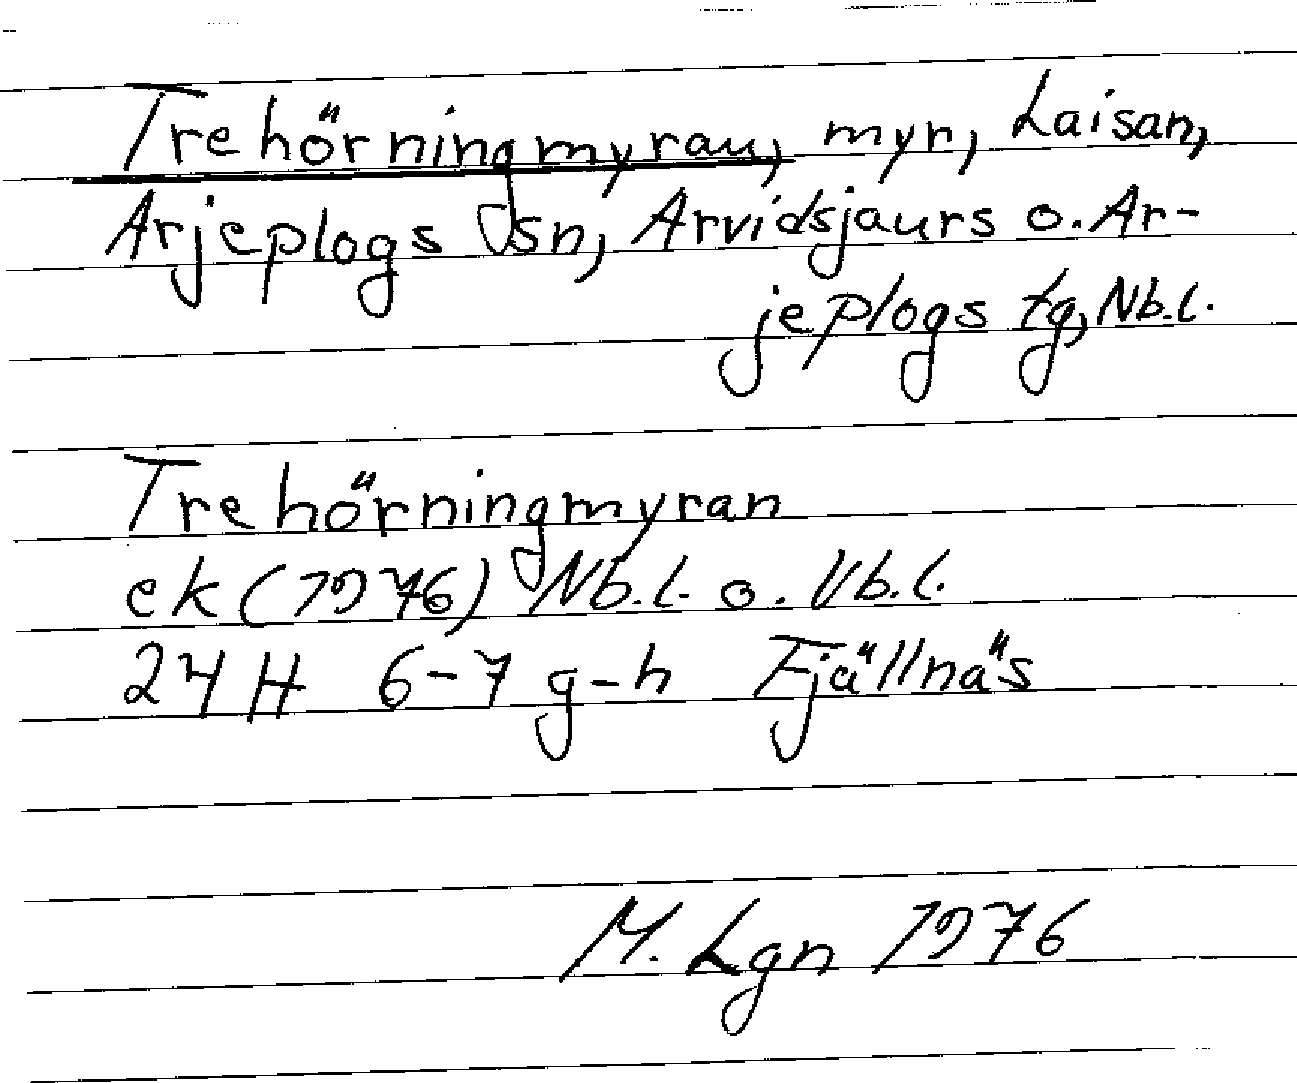 Trehörningmyran, myr, Laisan,
Arjeplogs sn, Arvidsjaurs o. Ar-
jeplogs tg, Nb.l.
Trehörningmyran
ek (1976) Nb.l. o. Vb.l.
24 H 6-7 g-h Fjällnäs
M. Lgn 1976